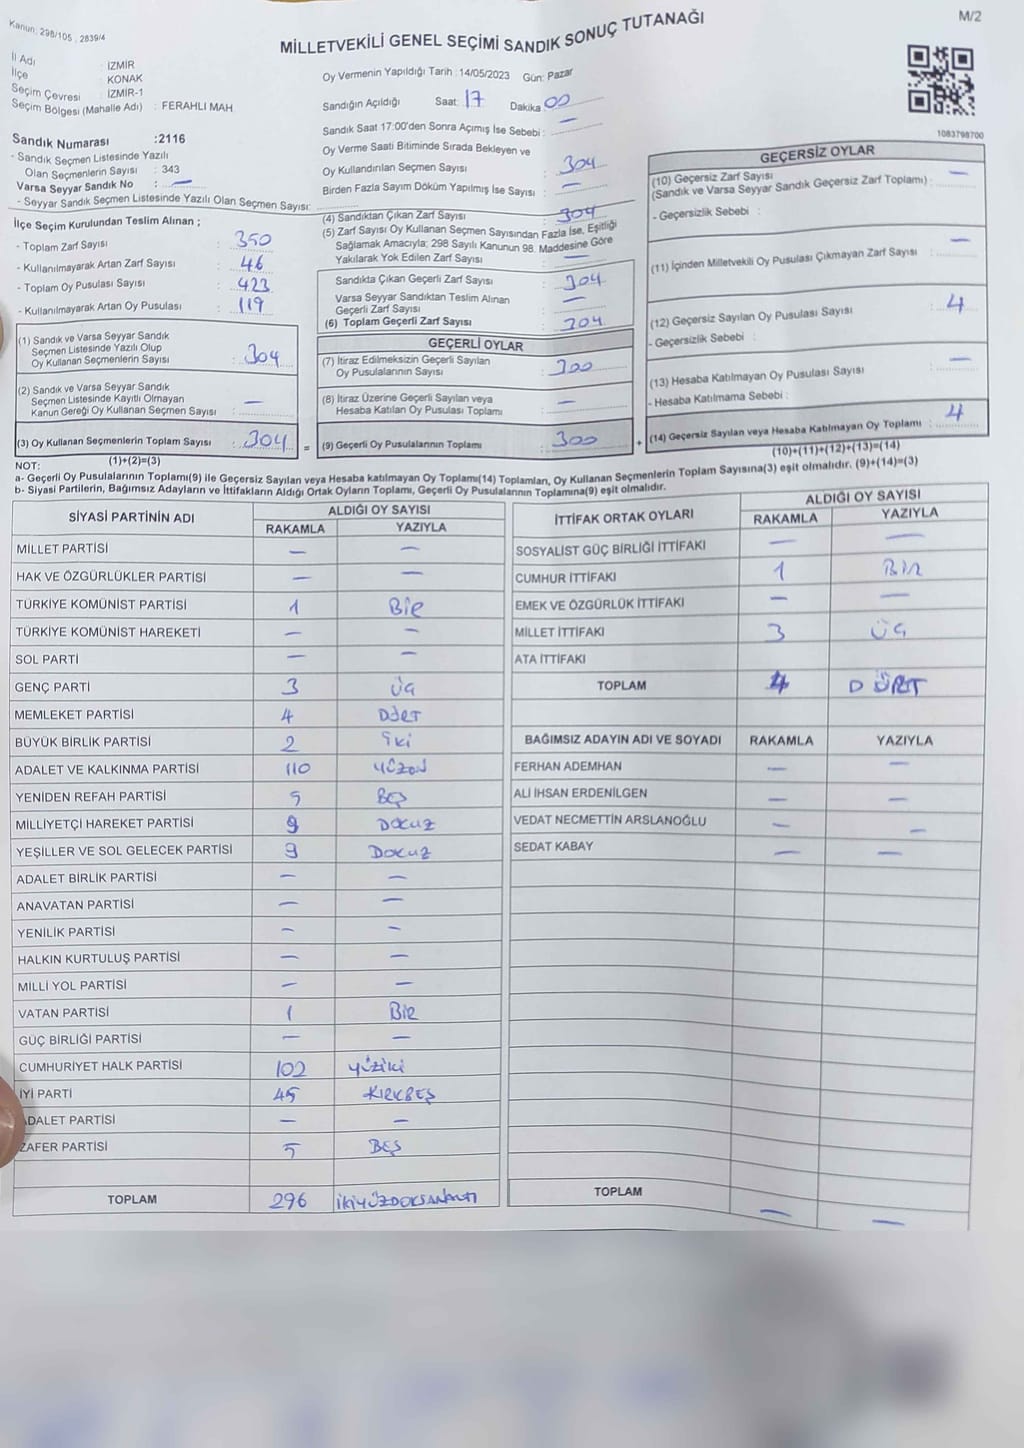 Kanun: 298/105 , 2839/4
M/2
MİLLETVEKİLİ GENEL SEÇİMİ SANDIK SONUÇ TUTANAĞI
İl Adı : İZMİR
İlçe : KONAK
Seçim Çevresi : İZMİR-1
Seçim Bölgesi (Mahalle Adı) : FERAHLI MAH
Oy Vermenin Yapıldığı Tarih : 14/05/2023 Gün: Pazar
Sandığın Açıldığı Saat: 17 Dakika 00
Sandık Saat 17:00'den Sonra Açımış İse Sebebi : —
Oy Verme Saati Bitiminde Sırada Bekleyen ve
Oy Kullandırılan Seçmen Sayısı : 304
Birden Fazla Sayım Döküm Yapılmış İse Sayısı : —
1083798700
Sandık Numarası :2116
- Sandık Seçmen Listesinde Yazılı
Olan Seçmenlerin Sayısı : 343
Varsa Seyyar Sandık No : —
- Seyyar Sandık Seçmen Listesinde Yazılı Olan Seçmen Sayısı:
İlçe Seçim Kurulundan Teslim Alınan ;
- Toplam Zarf Sayısı : 350
- Kullanılmayarak Artan Zarf Sayısı : 46
- Toplam Oy Pusulası Sayısı : 423
- Kullanılmayarak Artan Oy Pusulası : 119
(1) Sandık ve Varsa Seyyar Sandık
Seçmen Listesinde Yazılı Olup
Oy Kullanan Seçmenlerin Sayısı : 304
(2) Sandık ve Varsa Seyyar Sandık
Seçmen Listesinde Kayıtlı Olmayan
Kanun Gereği Oy Kullanan Seçmen Sayısı : —
(3) Oy Kullanan Seçmenlerin Toplam Sayısı : 304 =
(1)+(2)=(3)
(4) Sandıktan Çıkan Zarf Sayısı : 304
(5) Zarf Sayısı Oy Kullanan Seçmen Sayısından Fazla İse, Eşitliği
Sağlamak Amacıyla; 298 Sayılı Kanunun 98. Maddesine Göre
Yakılarak Yok Edilen Zarf Sayısı : —
Sandıkta Çıkan Geçerli Zarf Sayısı : 304
Varsa Seyyar Sandıktan Teslim Alınan
Geçerli Zarf Sayısı : —
(6) Toplam Geçerli Zarf Sayısı : 304
GEÇERLİ OYLAR
(7) İtiraz Edilmeksizin Geçerli Sayılan
Oy Pusulalarının Sayısı : 300
(8) İtiraz Üzerine Geçerli Sayılan veya
Hesaba Katılan Oy Pusulası Toplamı : —
(9) Geçerli Oy Pusulalarının Toplamı : 300 +
GEÇERSİZ OYLAR
(10) Geçersiz Zarf Sayısı
(Sandık ve Varsa Seyyar Sandık Geçersiz Zarf Toplamı) : —
- Geçersizlik Sebebi :
(11) İçinden Milletvekili Oy Pusulası Çıkmayan Zarf Sayısı : —
(12) Geçersiz Sayılan Oy Pusulası Sayısı : 4
- Geçersizlik Sebebi :
(13) Hesaba Katılmayan Oy Pusulası Sayısı : —
- Hesaba Katılmama Sebebi :
(14) Geçersiz Sayılan veya Hesaba Katılmayan Oy Toplamı : 4
(10)+(11)+(12)+(13)=(14)
NOT:
a- Geçerli Oy Pusulalarının Toplamı(9) ile Geçersiz Sayılan veya Hesaba katılmayan Oy Toplamı(14) Toplamları, Oy Kullanan Seçmenlerin Toplam Sayısına(3) eşit olmalıdır. (9)+(14)=(3)
b- Siyasi Partilerin, Bağımsız Adayların ve İttifakların Aldığı Ortak Oyların Toplamı, Geçerli Oy Pusulalarının Toplamına(9) eşit olmalıdır.
SİYASİ PARTİNİN ADI
ALDIĞI OY SAYISI
RAKAMLA YAZIYLA
MİLLET PARTİSİ — —
HAK VE ÖZGÜRLÜKLER PARTİSİ — —
TÜRKİYE KOMÜNİST PARTİSİ 1 Bir
TÜRKİYE KOMÜNİST HAREKETİ — —
SOL PARTİ — —
GENÇ PARTİ 3 Üç
MEMLEKET PARTİSİ 4 Dört
BÜYÜK BİRLİK PARTİSİ 2 İki
ADALET VE KALKINMA PARTİSİ 110 YÜZON
YENİDEN REFAH PARTİSİ 5 BEŞ
MİLLİYETÇİ HAREKET PARTİSİ 9 DOKUZ
YEŞİLLER VE SOL GELECEK PARTİSİ 9 DOKUZ
ADALET BİRLİK PARTİSİ — —
ANAVATAN PARTİSİ — —
YENİLİK PARTİSİ — —
HALKIN KURTULUŞ PARTİSİ — —
MİLLİ YOL PARTİSİ — —
VATAN PARTİSİ 1 Bir
GÜÇ BİRLİĞİ PARTİSİ — —
CUMHURİYET HALK PARTİSİ 102 YÜZİKİ
İYİ PARTİ 45 KIRKBEŞ
ADALET PARTİSİ — —
ZAFER PARTİSİ 5 BEŞ
TOPLAM 296 İKİYÜZDOKSANALTI
İTTİFAK ORTAK OYLARI
ALDIĞI OY SAYISI
RAKAMLA YAZIYLA
SOSYALİST GÜÇ BİRLİĞİ İTTİFAKI — —
CUMHUR İTTİFAKI 1 BİR
EMEK VE ÖZGÜRLÜK İTTİFAKI — —
MİLLET İTTİFAKI 3 ÜÇ
ATA İTTİFAKI
TOPLAM 4 DÖRT
BAĞIMSIZ ADAYIN ADI VE SOYADI RAKAMLA YAZIYLA
FERHAN ADEMHAN — —
ALİ İHSAN ERDENİLGEN — —
VEDAT NECMETTİN ARSLANOĞLU — —
SEDAT KABAY — —
TOPLAM — —